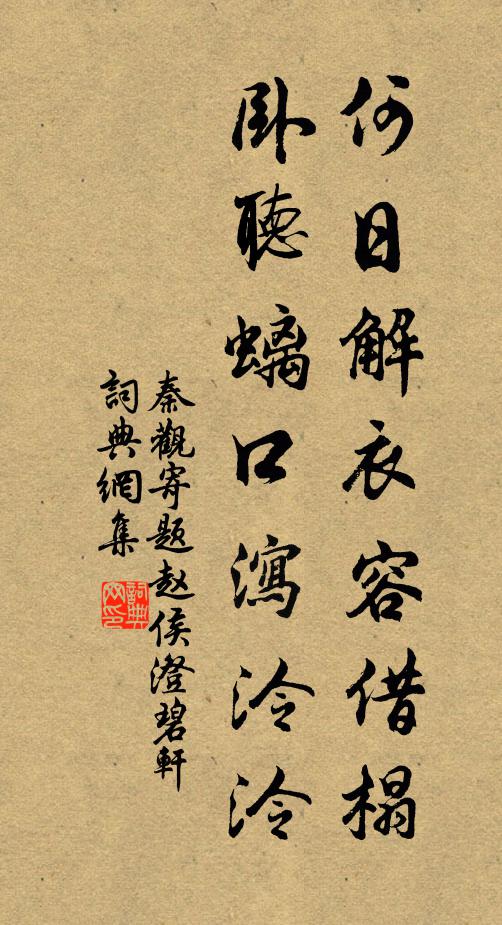 何日解衣容借榻
臥聽螭口瀉泠泠
秦觀寄題赵侯澄碧軒
詞典網集
詞典网印